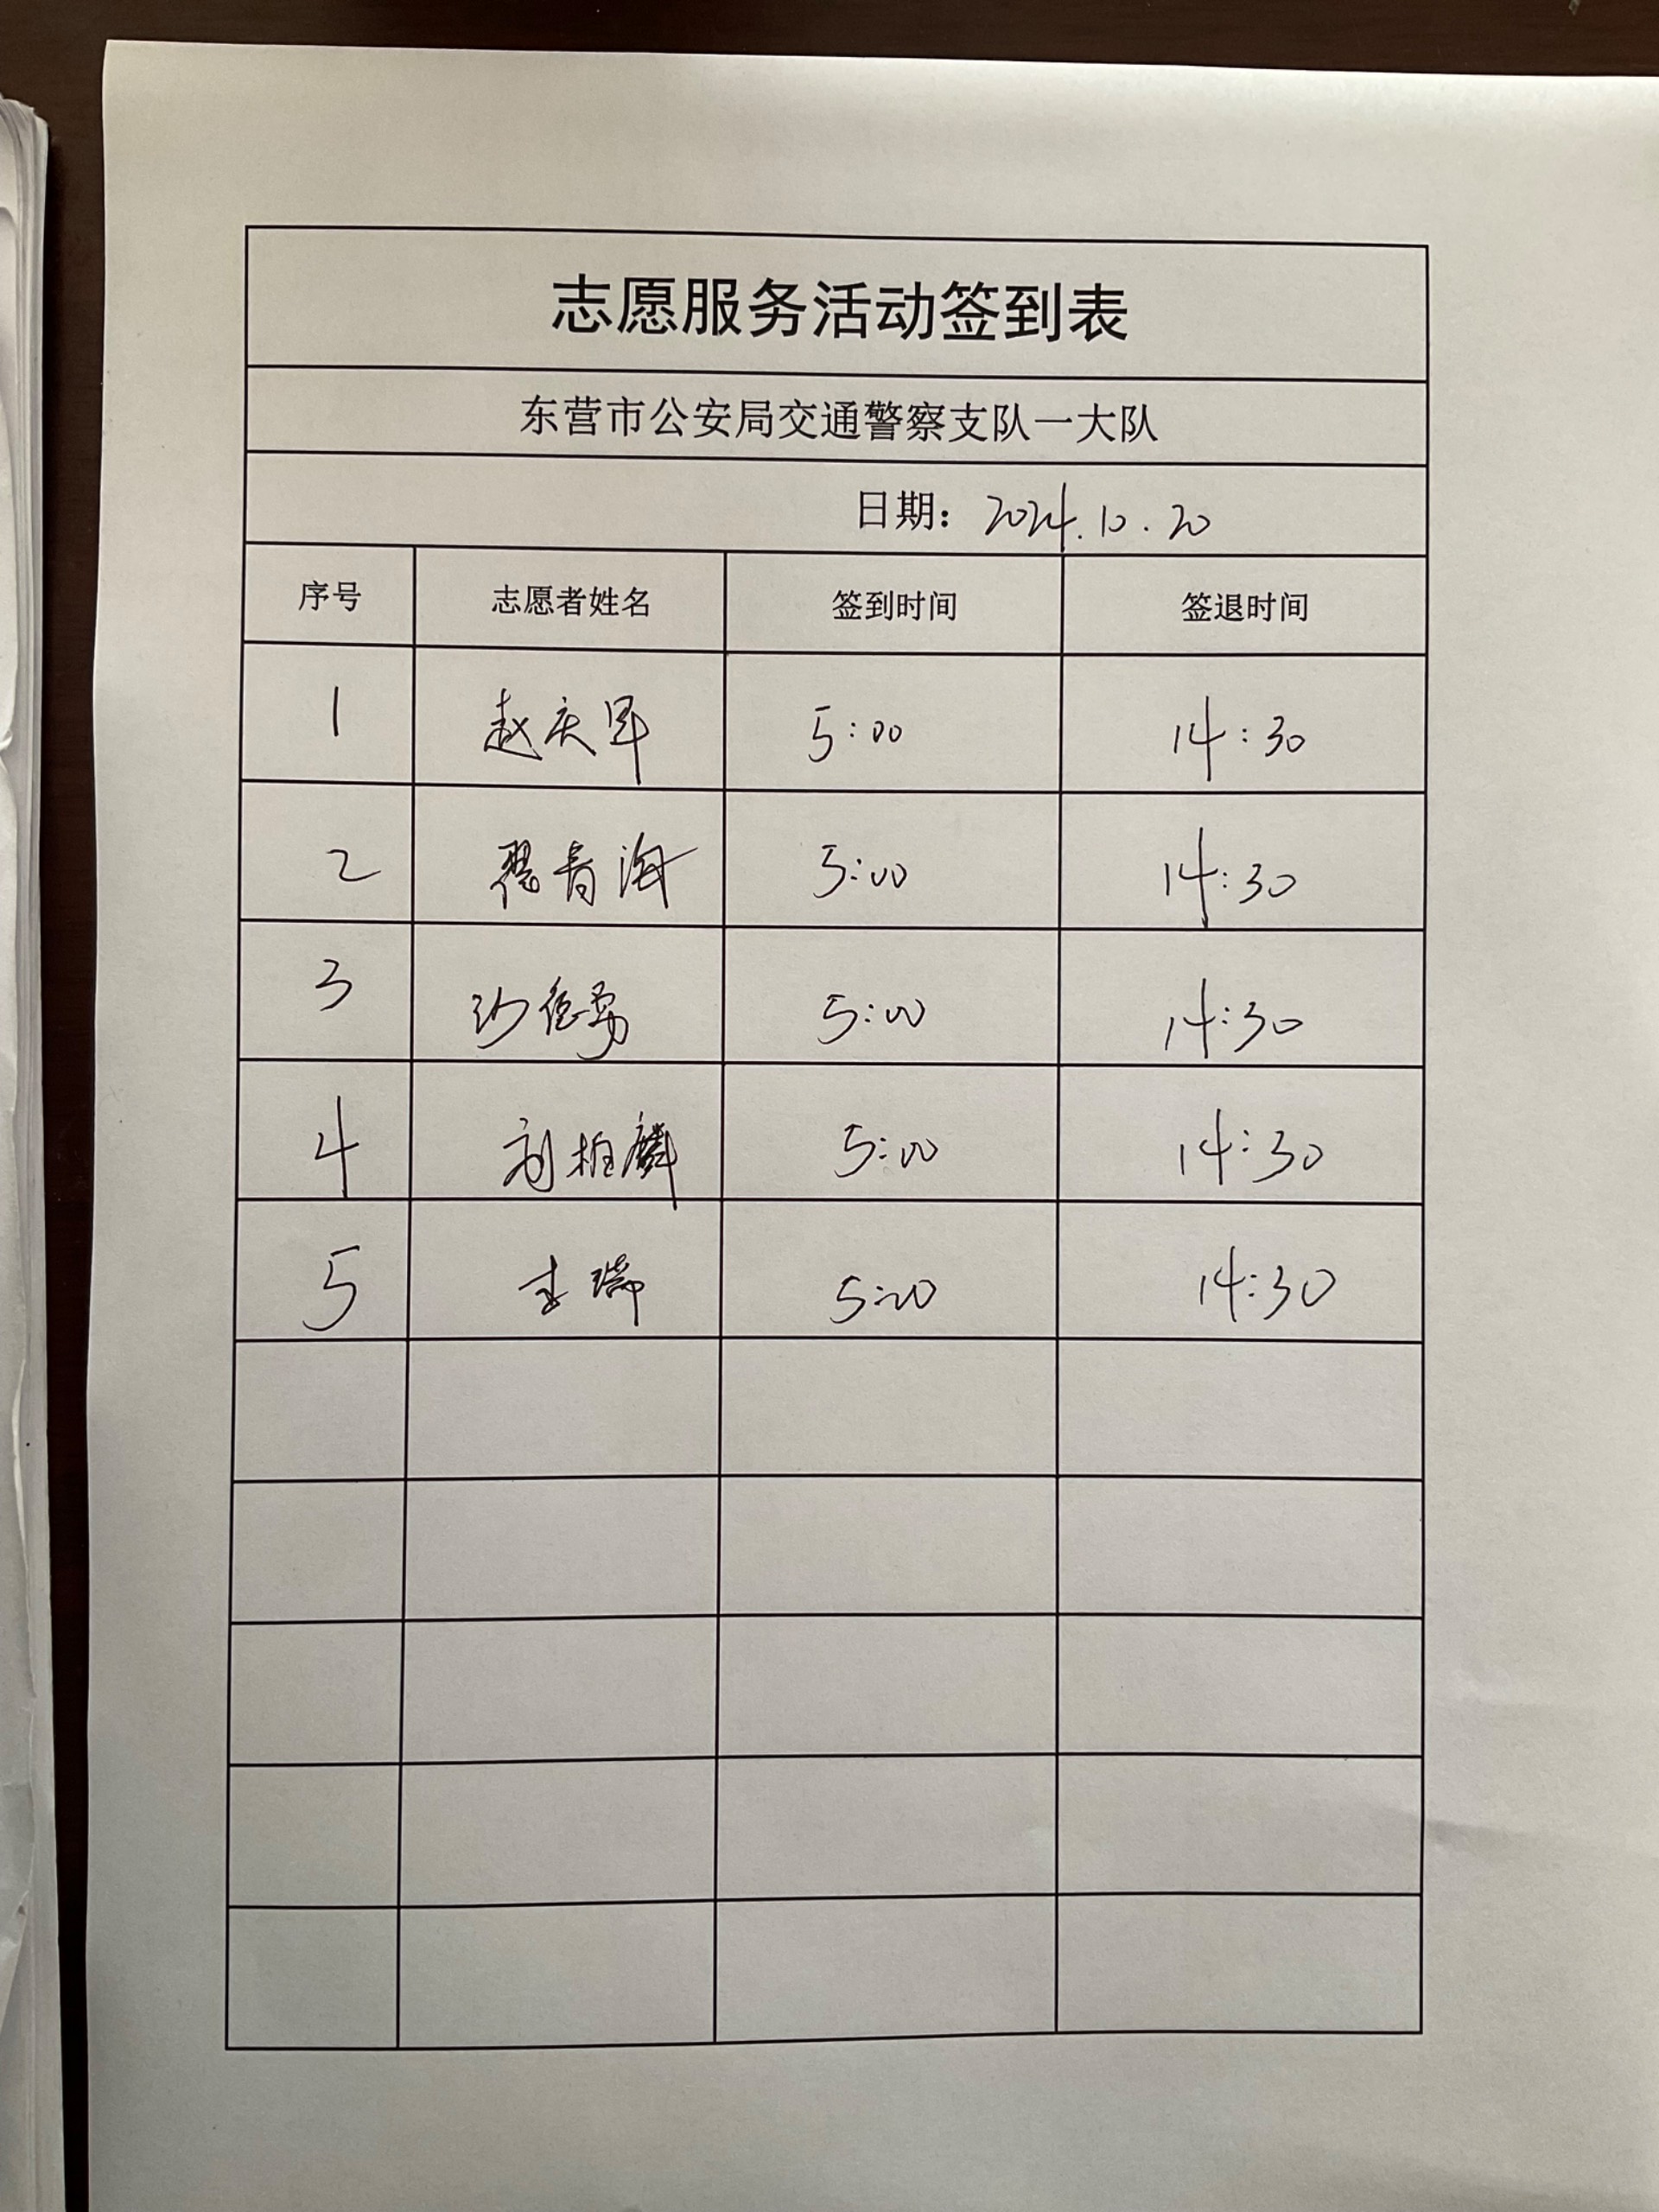 志愿服务活动签到表
东营市公安局交通警察支队一大队
日期：2024.10.20
序号 志愿者姓名 签到时间 签退时间
1 赵庆军 5:00 14:30
2 翟青海 5:00 14:30
3 沙德勇 5:00 14:30
4 刘柏麟 5:00 14:30
5 李瑞 5:20 14:30